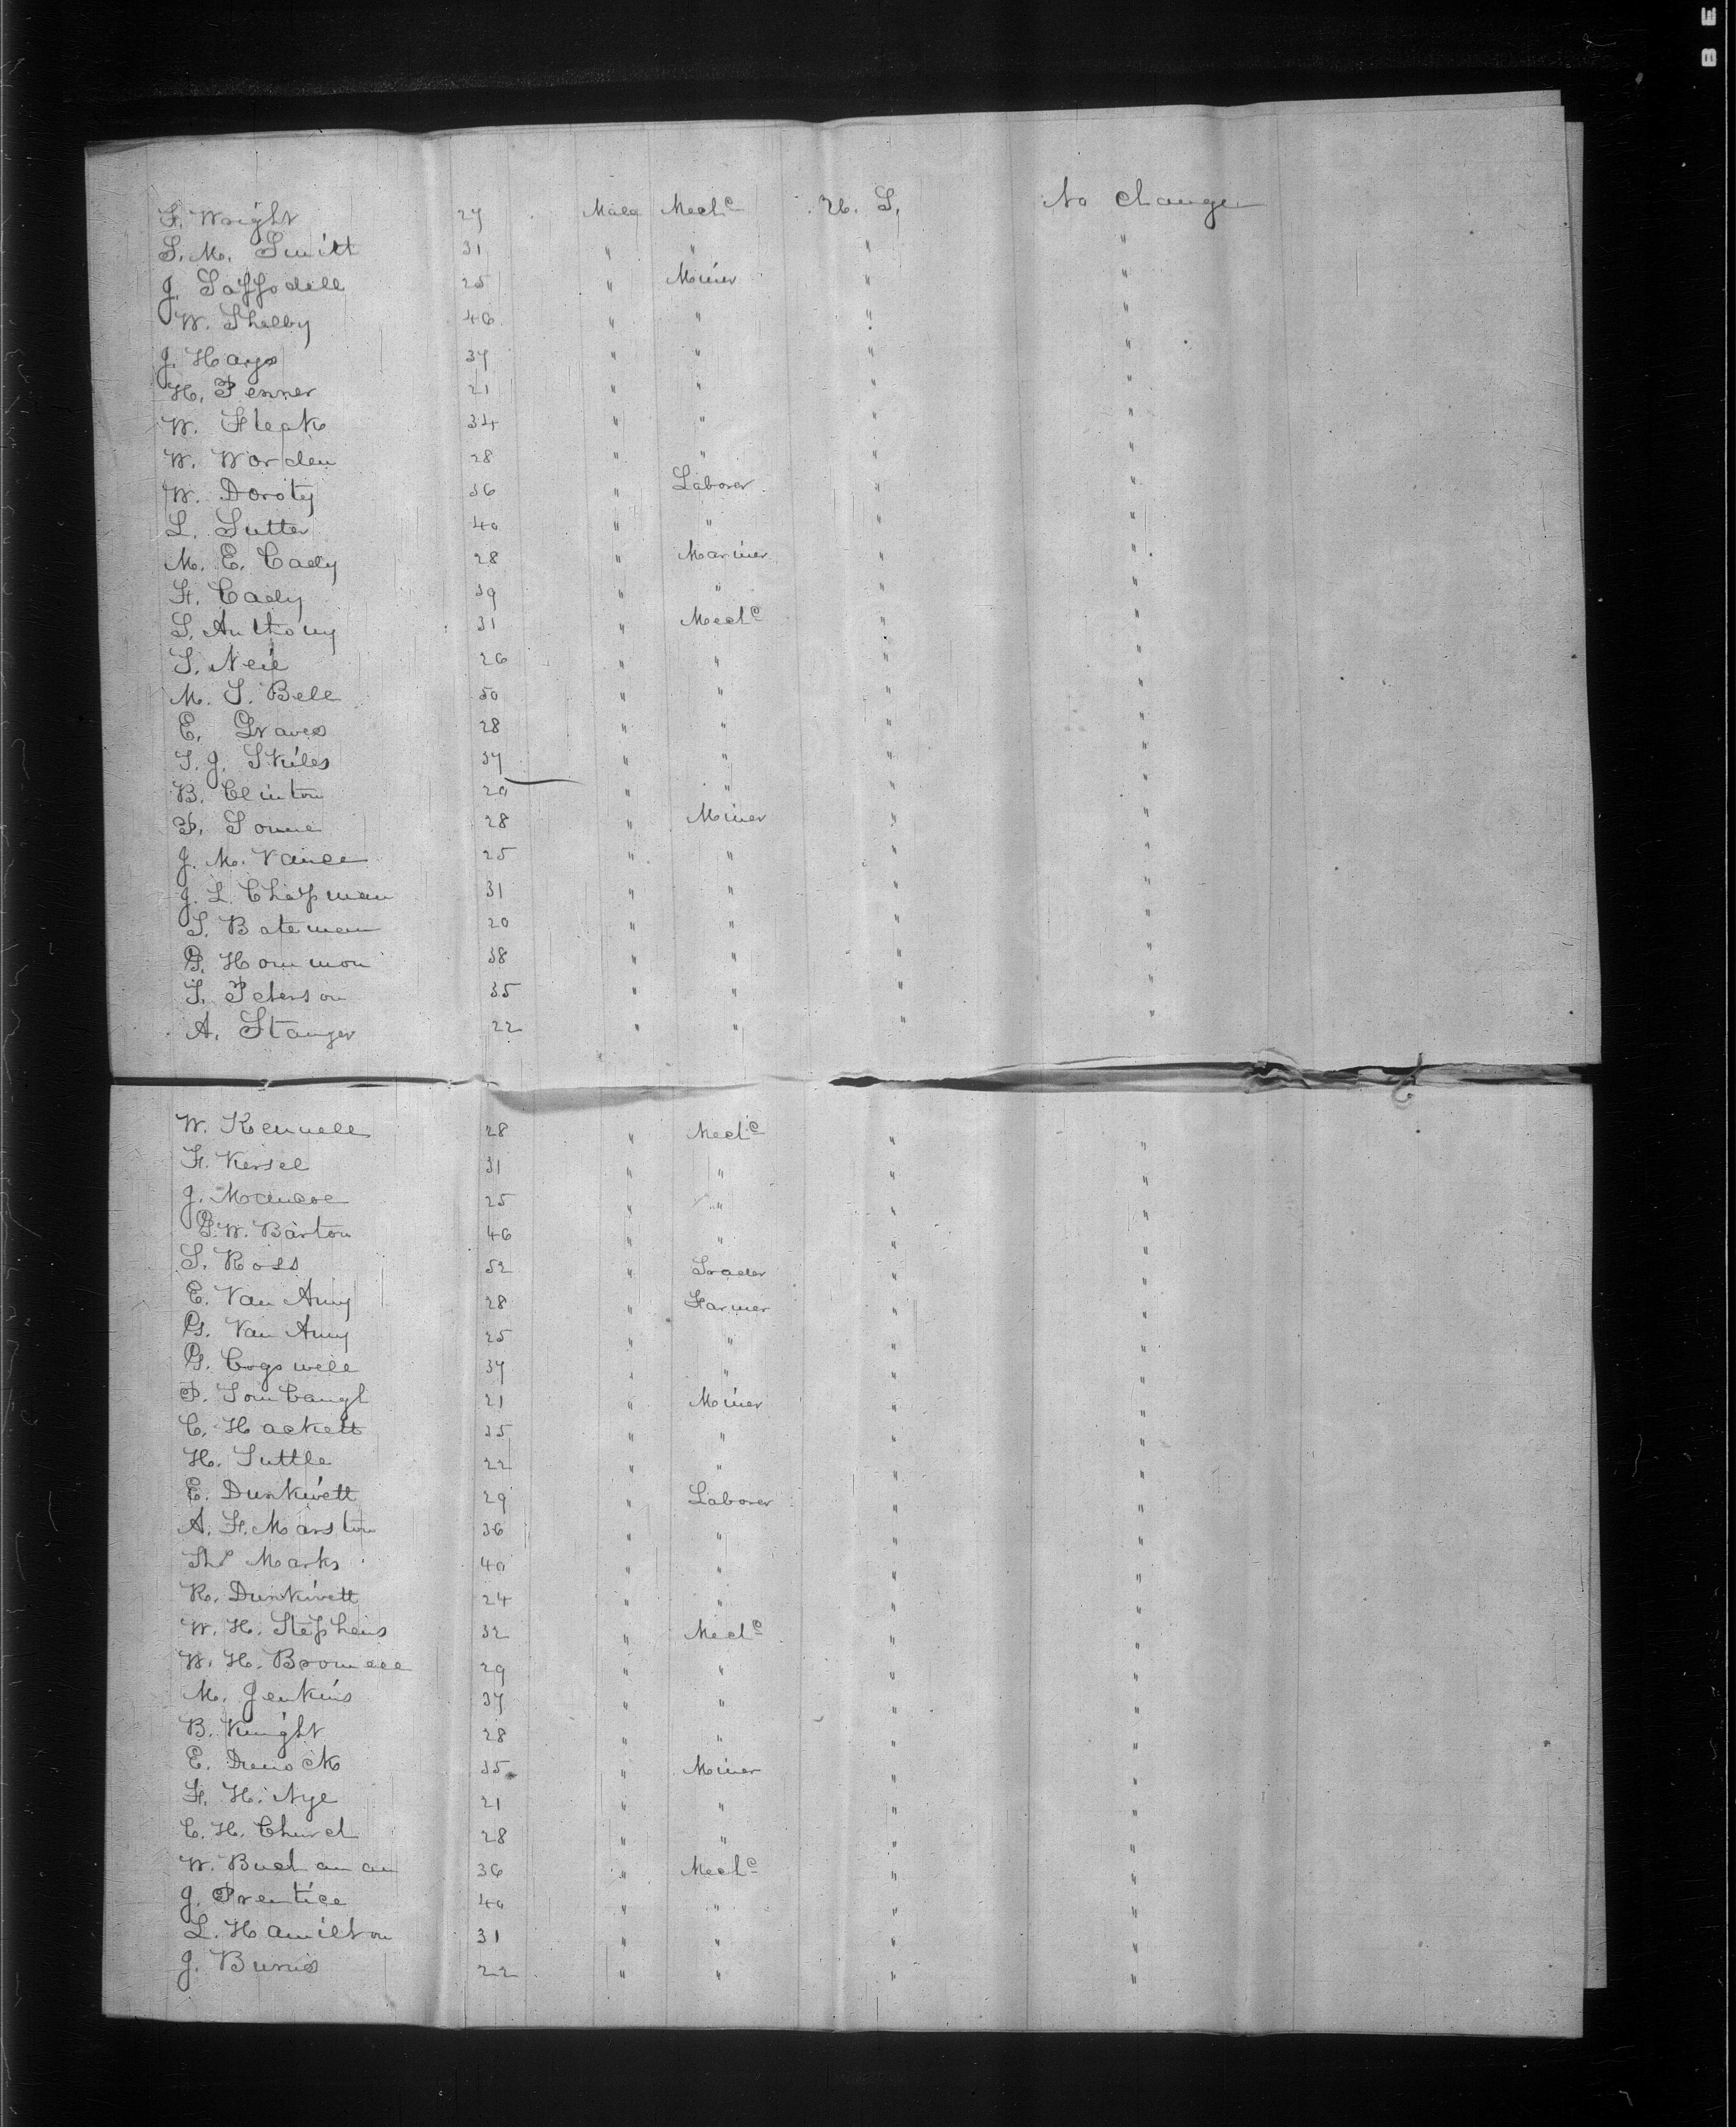 F. Wright 27 Male Mech.c U. S. No change
S. M. Smith 31 " " " "
J. Saffodill 25 " Miner " "
W. Shelby 46 " " " "
J. Hays 37 " " " "
H. Penner 21 " " " "
W. Fleak 34 " " " "
W. Worden 28 " " " "
W. Doroty 36 " Laborer " "
L. Sutter 40 " " " "
M. E. Cady 28 " Mariner " "
F. Cady 39 " " " "
S. Anthony 31 " Mech.c " "
S. Neil 26 " " " "
M. S. Bell 50 " " " "
E. Graves 28 " " " "
T. J. Skiles 37 " " " "
B. Clinton 20 " " " "
P. 28 " Miner " "
J. M. Vance 25 " " " "
J. L. Chapman 31 " " " "
S. Bateman 20 " " " "
G. Hommon 38 " " " "
T. Peterson 35 " " " "
A. Stanger 22 " " " "
W. Kennell 28 " Mech.c " "
F. Kersel 31 " " " "
J. 25 " " " "
G. W. Barton 46 " " " "
S. Ross 52 " Trader " "
E. Van Amy 28 " Farmer " "
G. Van Amy 25 " " " "
G. Cogswell 37 " " " "
P. 21 " Miner " "
C. Hackett 35 " " " "
H. Tuttle 22 " " " "
E. Dunkivett 29 " Laborer " "
A. F. Marston 36 " " " "
Ths Marks 40 " " " "
R. Dunkivett 24 " " " "
W. H. Stephens 32 " Mech.c " "
W. H. Bromell 29 " " " "
M. Jenkins 37 " " " "
B. Knight 28 " " " "
E. 35 " Miner " "
F. H. Nye 21 " " " "
C. H. Church 28 " " " "
W. Buchanan 36 " Mech.c " "
J. Prentice 40 " " " "
L. Hamilton 31 " " " "
J. Burns 22 " " " "